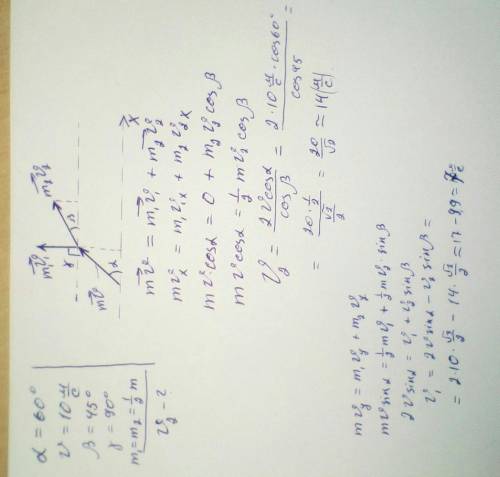 α = 60°
v = 10 м/с
β = 45°
γ = 90°
m₁ = m₂ = ½ m
v₂ - ?
m₁v₁
m₂v₂
mv
γ
β
α
x
mv = m₁v₁ + m₂v₂
mvₓ = m₁v₁ₓ + m₂v₂ₓ
mv cosα = 0 + m₂v₂ cosβ
mv cosα = ½ mv₂ cosβ
v₂ = 2v cosα / cosβ = 2·10 м/с · cos60° / cos45 =
= 20·½ / (√2/2) = 20/√2 ≈ 14 (м/с)
mv_y = m₁v₁_y + m₂v₂_y
mv sinα = ½ mv₁ + ½ mv₂ · sinβ
2v sinα = v₁ + v₂ sinβ
v₁ = 2v sinα - v₂ sinβ =
= 2·10·√3/2 - 14·√2/2 = 17 - 9,9 = 7 м/с